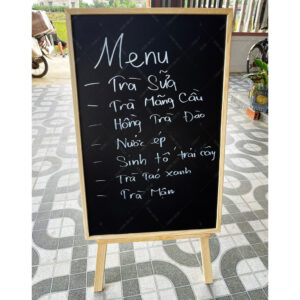 Menu
- Trà Sữa
- Trà Mãng Cầu
- Hồng Trà Đào
- Nước ép
- Sinh tố trái cây
- Trà Táo xanh
- Trà Mận